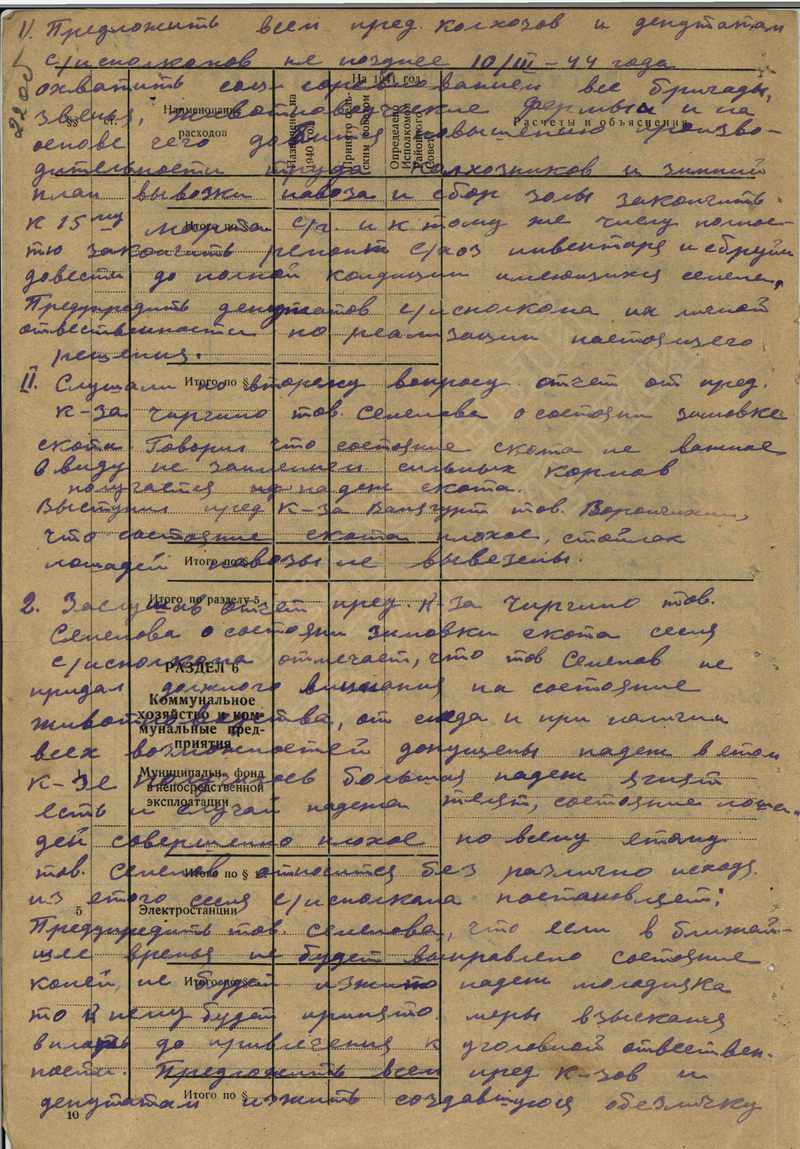 1) Предложить всем пред. колхозов и депутатам
с/исполкомов не позднее 10/III-44 года
охватить соц. соревнованием все бригады,
звенья, животноводческие фермы и на
основе чего добится повышению произво-
дительности труда колхозников и зимний
план вывозки навоза и сбор золы закончить
к 15му марта с/г. и к тому же числу полнос-
тю закончить ремонт с/хоз инвентаря и сбруи
довести до полной кондиции имеющихся семена,
Предупредить депутатов с/исполкома их личной
ответственности по реализации настоящего
решения.
II. Слушали по второму вопросу отчет от пред.
к-за Чиргино тов. Семенова о состояни зимовке
скота. Говорил что состояние скота не важное
в виду не сильных кормов
получается падеж скота.
Выступил пред к-за тов. Ворончихин,
что состояние скота плохое, стойлах
лошадей навозы не вывезены.
2. Заслушав отчет пред. к-за Чиргино тов.
Семенова о состояни зимовки скота сесия
с/исполкома отмечает, что тов Семенов не
придал должного внимания на состояние
животноводства, от сюда и при наличии
всех возможностей допущены падеж в етом
к-зе большая падеж ягнят
есть и случаи падежа телят, состояние лоша-
дей совершенно плохое по всему етому
тов. Семенов относится без различно исходя
из етого сесия с/исполкома постановляет:
Предупредить тов. Семенова, что если в ближай-
шее время не будет выправлено состояние
коней, не будет изжито падеж молодняка
то к нему будет принято меры взыскания
вплоть до привлечения к уголовной ответствен-
ности. Предложить всем пред к-зов и
депутатам изжить создавшуюся обезличку
§§
Наименование
расходов
Назначено на
1940 год
На 1941 год
Принято сель-
ским советом
Определено
Исполкомом
Районного
Совета
Расчеты и объяснения
Итого по §
Итого по §
Итого по §
Итого по разделу 5
РАЗДЕЛ 6
Коммунальное
хозяйство и ком-
мунальные пред-
приятия
Муниципальн. фонд
в непосредственной
эксплоатации
Итого по § 1
5 Электростанции
Итого по §
Итого по §
10